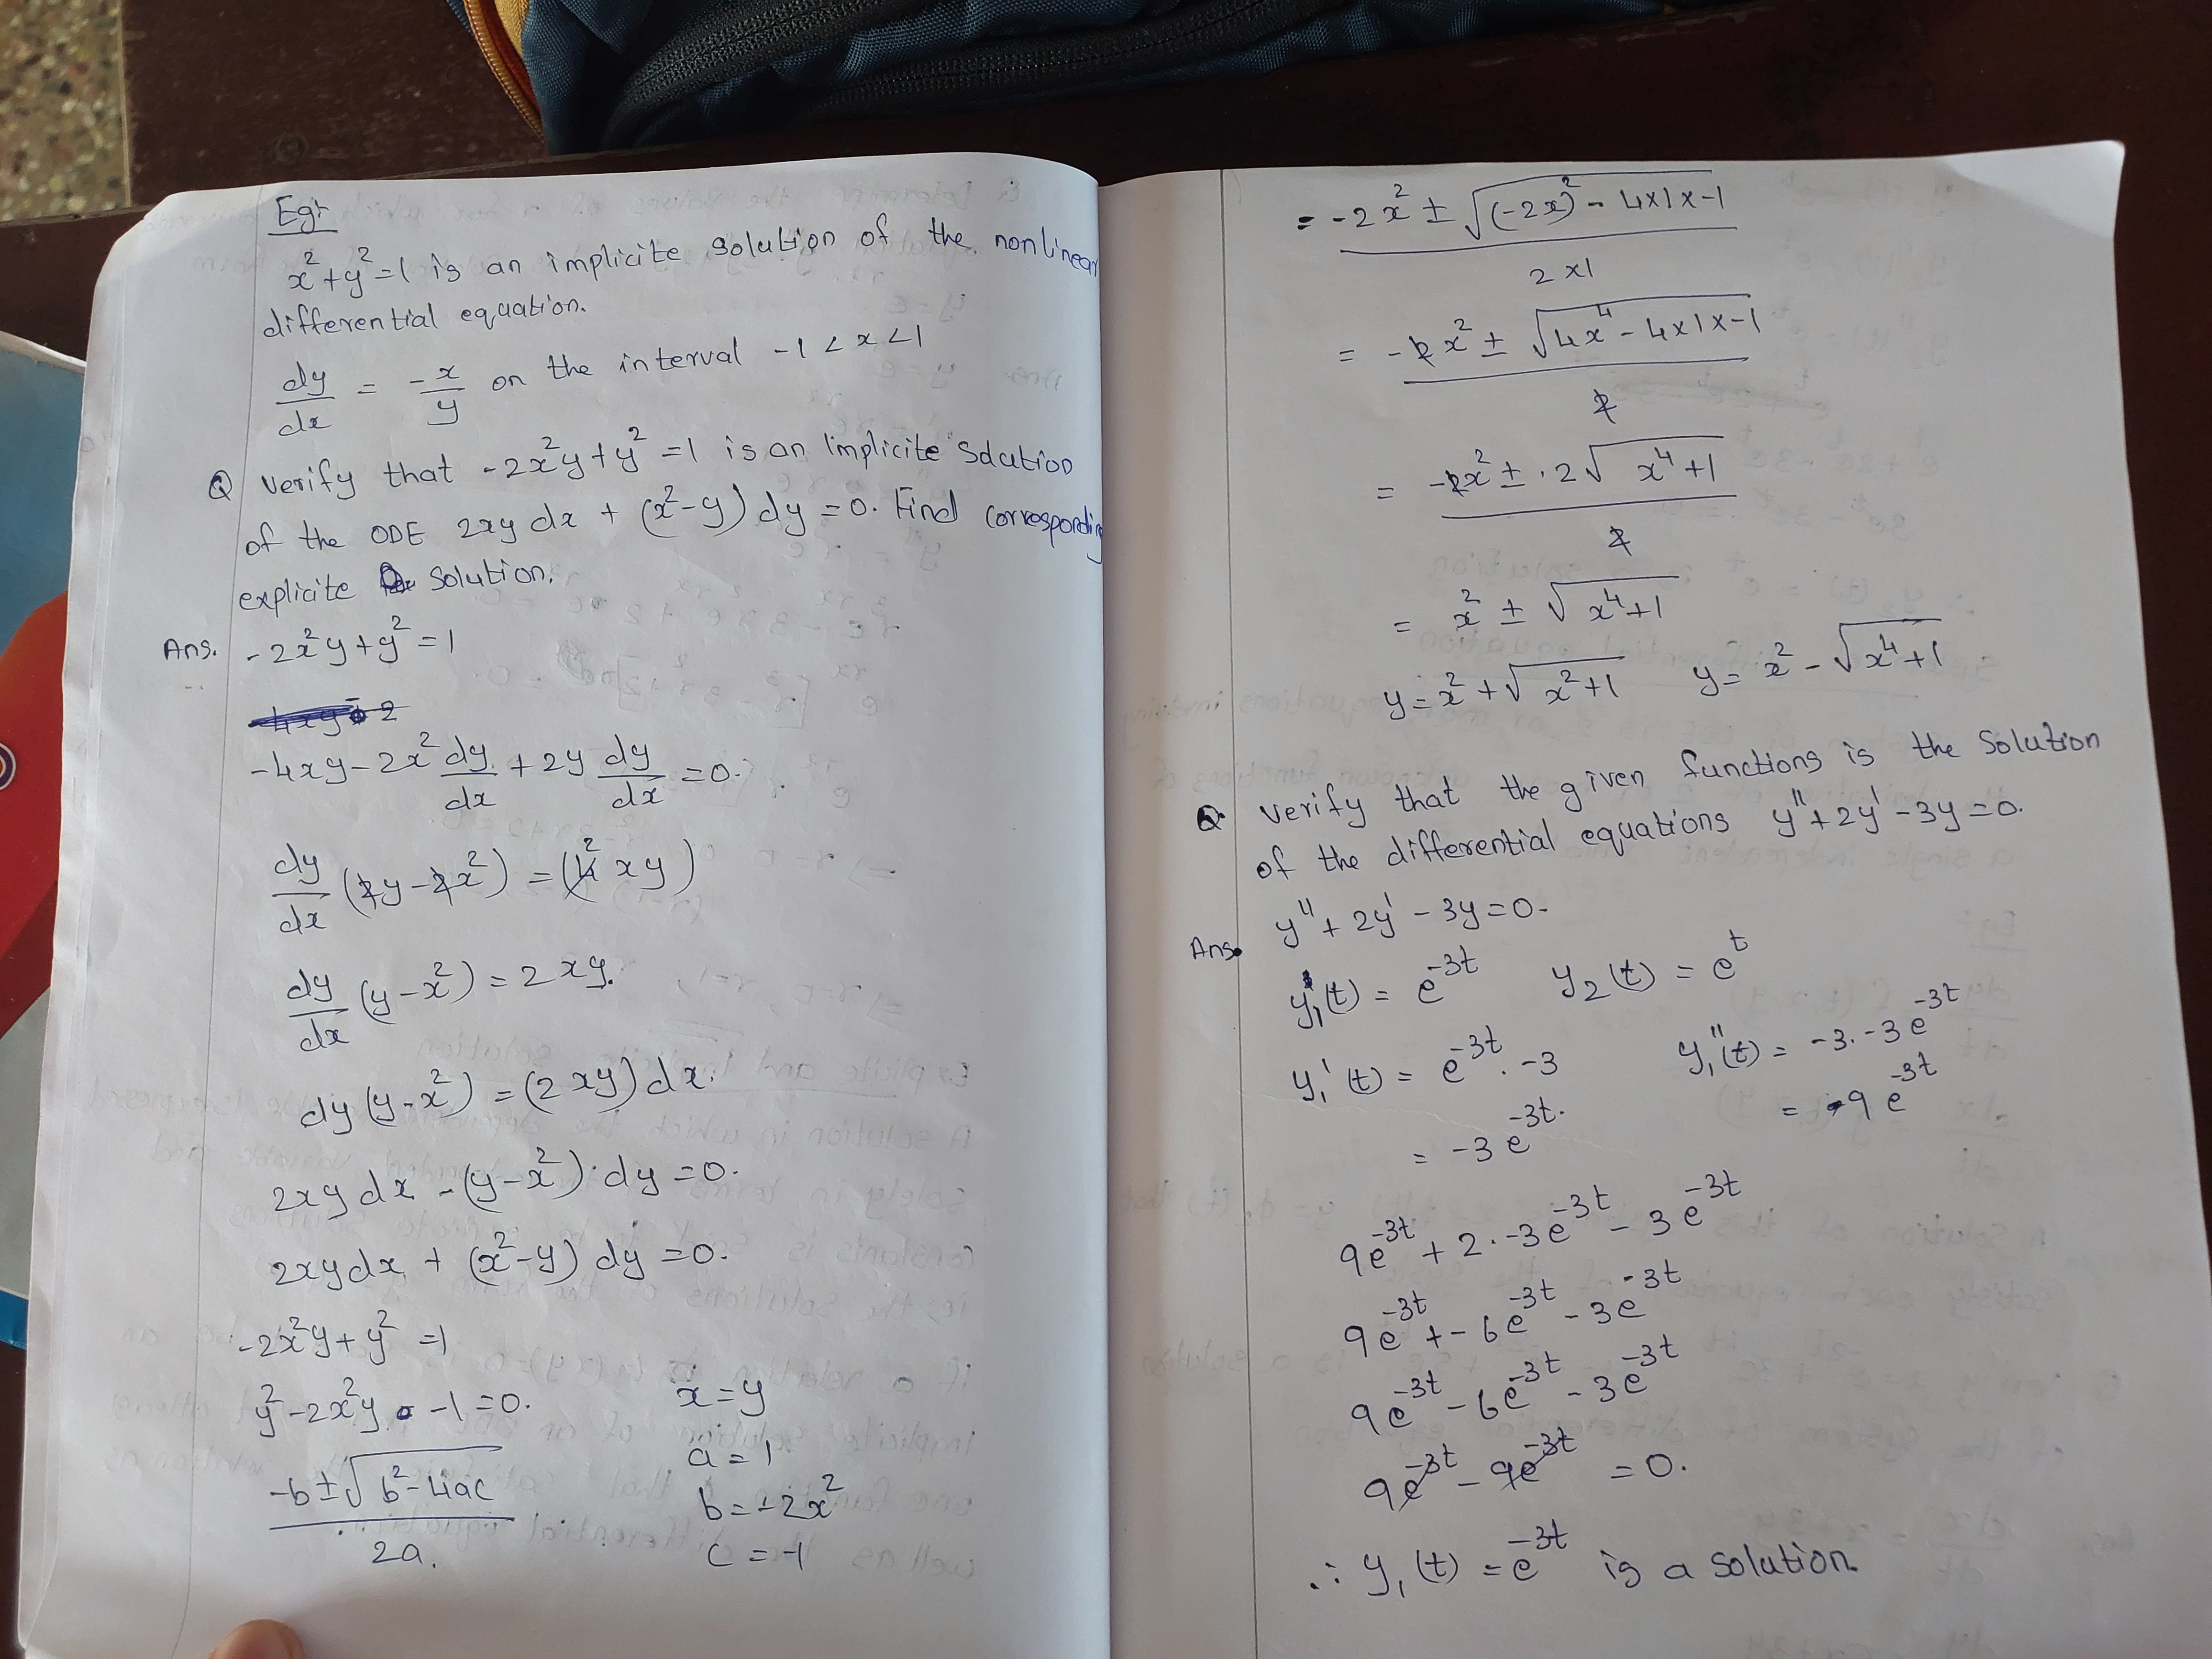 Eg:
x²+y²=1 is an implicite solution of the nonlinear
differential equation.
dy/dx = -x/y on the interval -1 < x < 1
Q verify that -2x²y+y²=1 is an implicite solution
of the ODE 2xy dx + (x²-y) dy = 0. Find corresponding
explicite solution.
Ans. -2x²y+y²=1
-4xy-2x² dy/dx + 2y dy/dx = 0.
dy/dx (2y-2x²) = (4 2 xy)
dy/dx (y-x²) = 2xy.
dy (y-x²) = (2xy) dx.
2xy dx - (y-x²) dy = 0.
2xy dx + (x²-y) dy = 0.
-2x²y + y² = 1
y²-2x²y -1=0. x=y
-b±√b²-4ac / 2a. a=1
b=-2x²
c=-1
= -2x² ± √(-2x)² - 4x1x-1 / 2x1
= -2x² ± √4x⁴ - 4x1x-1 / 2
= -2x² ± 2√x⁴+1 / 2
= x² ± √x⁴+1
y = x² + √x²+1 y = x² - √x⁴+1
Q. verify that the given functions is the solution
of the differential equations y''+2y'-3y=0.
y''+2y'-3y=0.
Ans. y₁(t) = e⁻³ᵗ y₂(t) = eᵗ
y₁'(t) = e⁻³ᵗ. -3 y₁''(t) = -3.-3e⁻³ᵗ
= -3e⁻³ᵗ. = 9e⁻³ᵗ
9e⁻³ᵗ + 2.-3e⁻³ᵗ - 3e⁻³ᵗ
9e⁻³ᵗ + -6e⁻³ᵗ - 3e⁻³ᵗ
9e⁻³ᵗ - 6e⁻³ᵗ - 3e⁻³ᵗ
9e⁻³ᵗ - 9e⁻³ᵗ = 0.
∴ y₁(t) = e⁻³ᵗ is a solution.